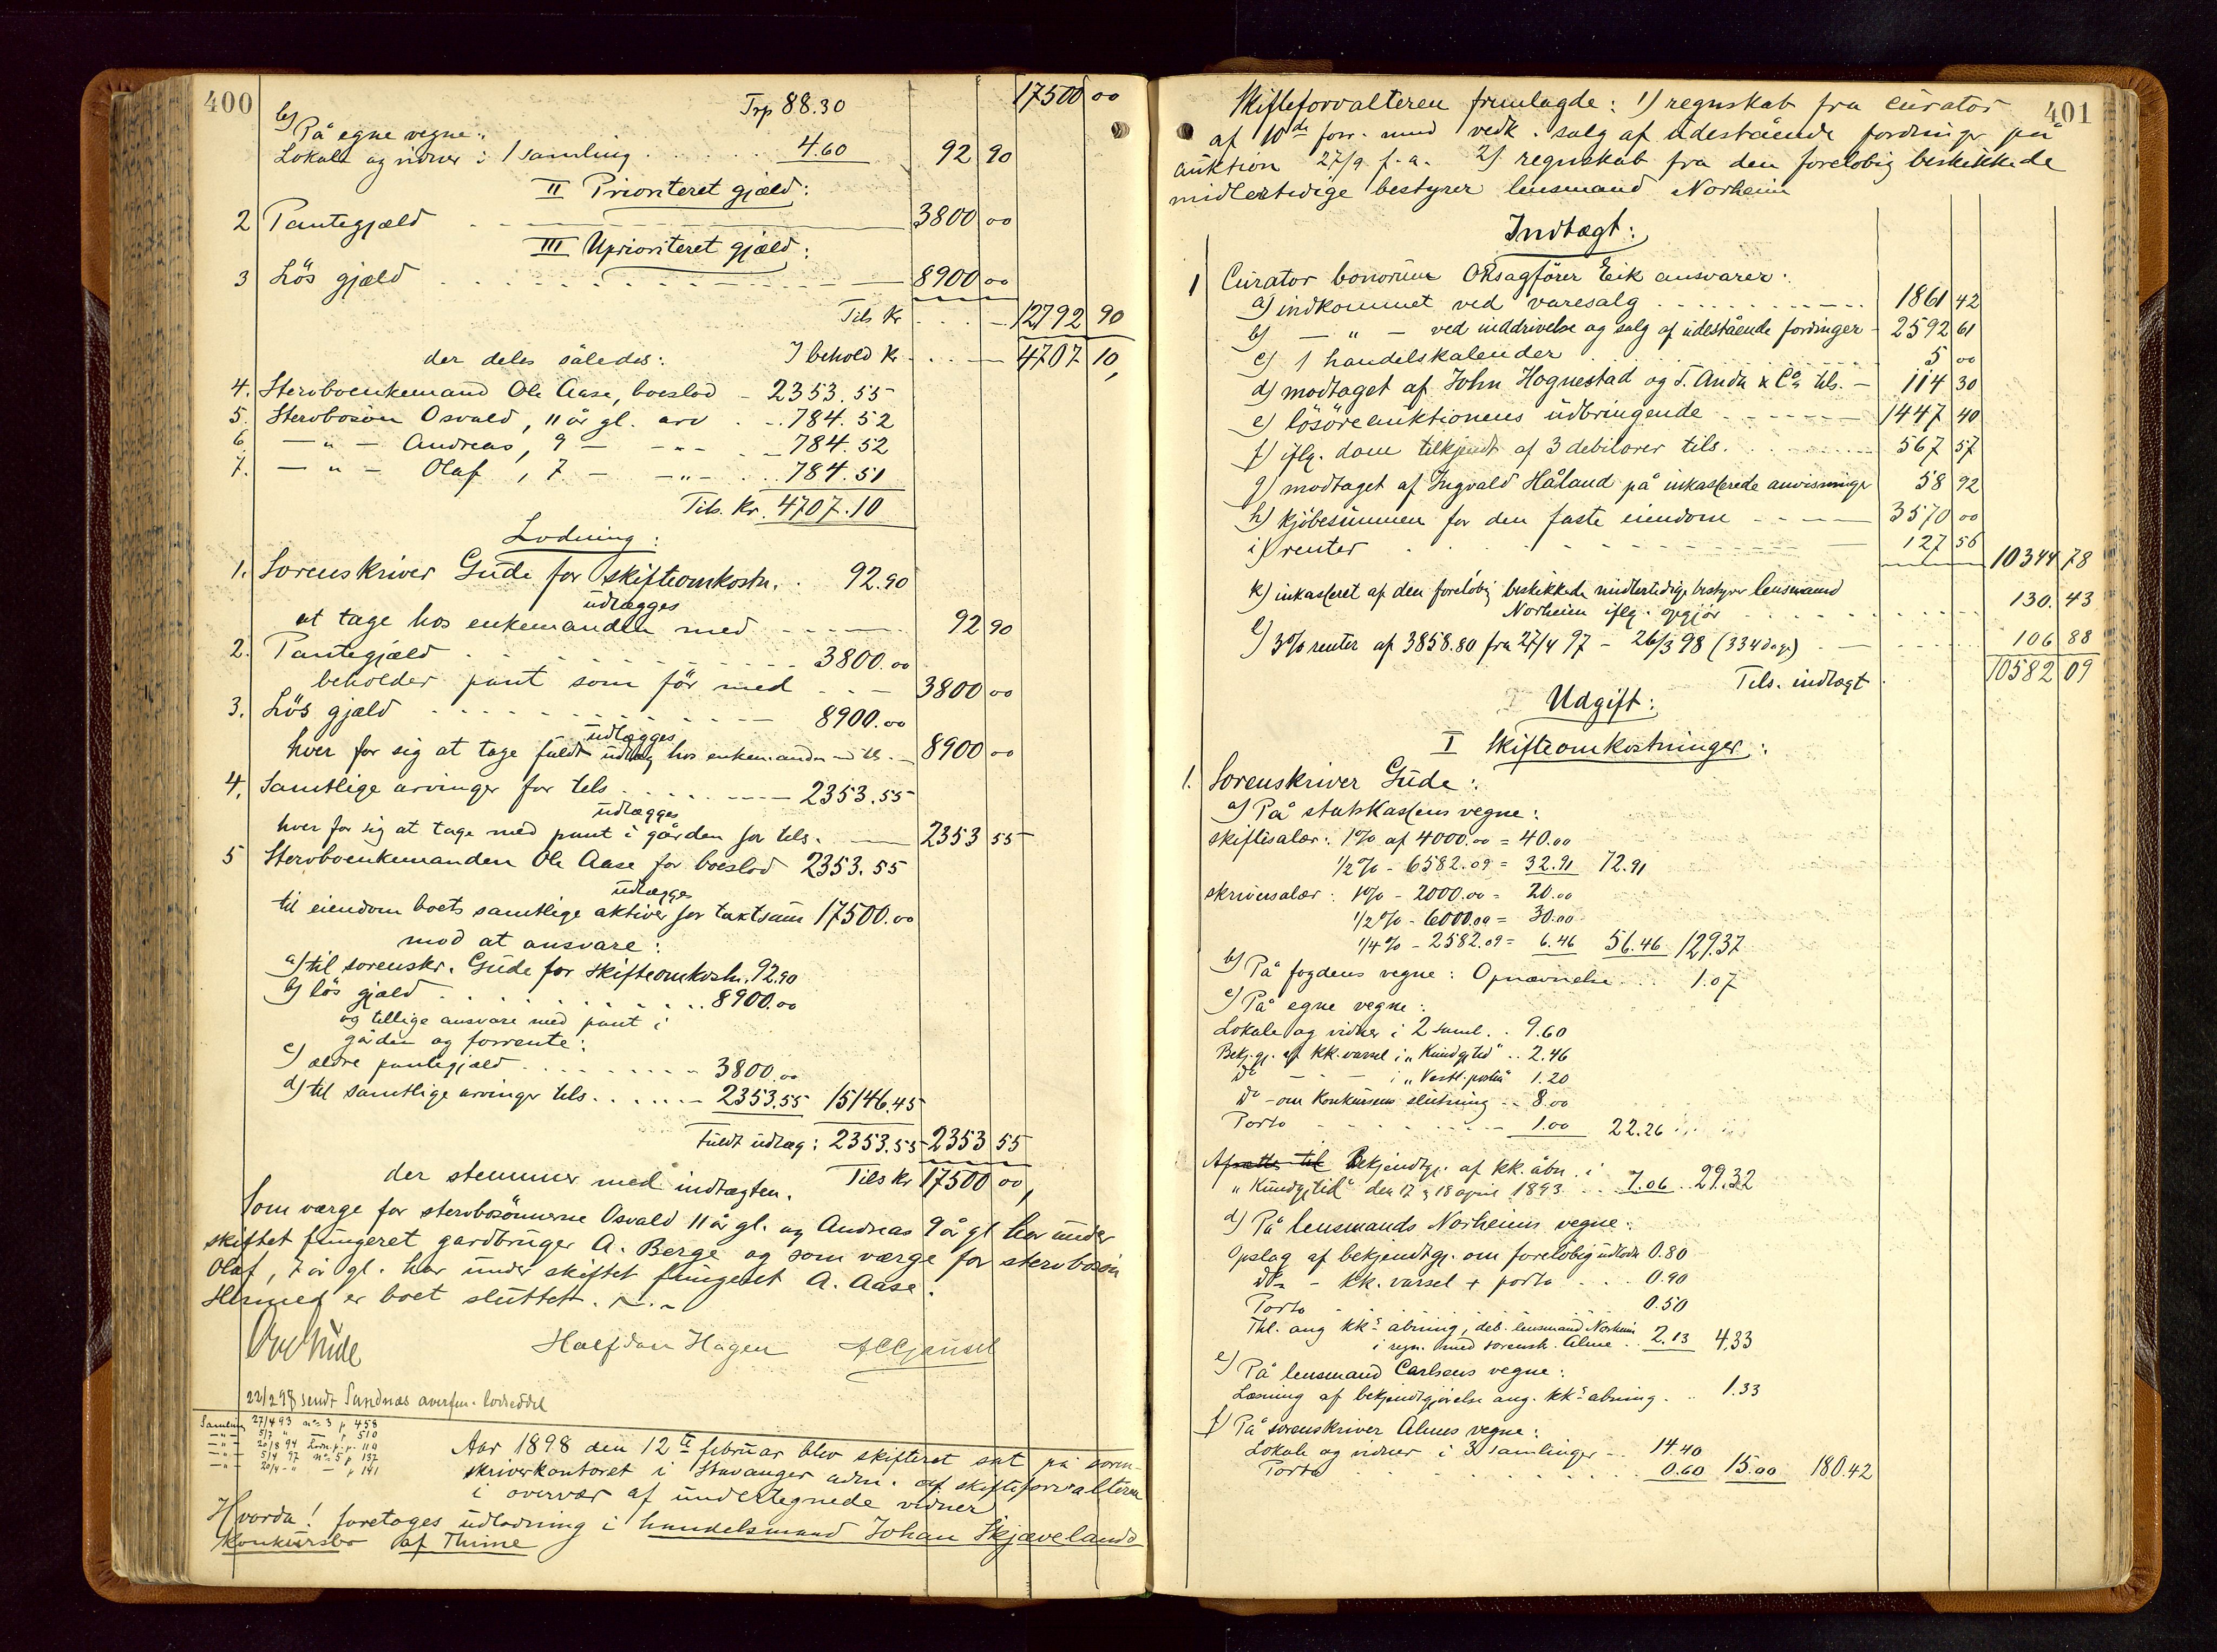 400
Trp 88.30 17500 00
b) På egne vegne:
Lokale og vidner i 1 samling 4.60 92 90
II Prioriteret gjæld:
2 Pantegjæld 3800 00
III Uprioriteret gjæld:
3 Lös gjæld 8900 00
Tils Kr 12792 90
der deles således: I behold K 4707 10,
4. Stervboenkemand Ole Aase, boeslod 2353.55
5. Stervbosön Osvald, 11 år gl. arv 784.52
6. — " — Andreas, 9 — 784.52
7. — " — Olaf, 7 — — " — 784.51
Tils. Kr. 4707.10
Lodning:
1. Sorenskriver Gude for skifteomkostn. 92.90
udlægges
at tage hos enkemanden med 92 90
2. Pantegjæld 3800.00
beholder pant som för med 3800 00
3. Lös gjæld 8900.00
udlægges
hver for sig at tage fuldt udlæg hos enkemanden m tls. 8900 00
4. Samtlige arvinger for tils 2353.55
udlægges
hver for sig at tage med pant i gården for tils. 2353 55
5 Stervboenkemanden Ole Aase for boeslod 2353.55
udlægges
til eiendom boets samtlige aktiver for taxtsum 17500.00
mod at ansvare:
a) til sorenskr. Gude for skifteomkostn. 92.90
b) lös gjæld 8900.00
og tillige ansvare med pant i
gården og forrente:
c) ældre pantegjæld 3800.00
d) til samtlige arvinger tils. 2353.55 15146.45
fuldt udlæg: 2353.55 2353 55
der stemmer med indtægten. Tils Kr 17500 00,
Som værge for stervbosönnerne Osvald 11 år gl. og Andreas 9 år gl har under
skiftet fungeret gardbruger A. Berge og som værge for stervbosön
Olaf, 7 år gl. har under skiftet fungeret A. Aase.
Hermed er boet sluttet.
Ove Gude Halfdan Hagen
22/2 98 sendt Sandnæs overfm. lodseddel
Samling 27/4 93 no 3 p 458
— " — 5/7 " — p 510
— " — 20/8 94 Lodn.p. p. 119
— " — 5/4 97 no 5 p 137
— " — 20/4 - " — p 141
Aar 1898 den 12te februar blev skifteret sat på soren-
skriverkontoret i Stavanger adm. af skifteforvalteren
i overvær af undertegnede vidner
Hvorda! foretages udlodning i handelsmand Johan Skjævelands
konkursbo af Thime
401
Skifteforvalteren fremlagde: 1) regnskab fra curator
af 10de forr. mnd vedk. salg af udestående fordringer på
auktion 27/9 f.a. 2) regnskab fra den foreløbig beskikkede
midlertidige bestyrer lensmand Norheim
Indtægt:
1 Curator bonorum ORsagförer Eik ansvarer:
a) indkommet ved varesalg 1861 42
b) — " — ved inddrivelse og salg af udestående fordringer 2592 61
c) 1 handelskalender 5 00
d) modtaget af John Hognestad og T. Anda & Co, tils. 114 30
e) lösöreauktionens udbringende 1447 40
f) iflg. dom tilkjendt af 3 debitorer tils. 567 57
g) modtaget af Ingvald Håland på inkasserede anvisninger 58 92
h) kjöbesummen for den faste eiendom 3570 00
i) renter 127 56 10344 78
k) inkasseret af den foreløbig beskikkede midlertidige bestyrer lensmand
Norheim iflg. opgjör 130.43
l) 3% renter af 3858.80 fra 27/4 97 - 26/3 98 (334 dage) 106 88
Tils. indtægt 10582 09
Udgift:
I Skifteomkostninger:
1. Sorenskriver Gude:
a) På statskassens vegne:
skiftesalær: 1% af 4000.00 = 40.00
1/2% - 6582.09 = 32.91 72.91
skriversalær: 1% - 2000.00 = 20.00
1/2% - 6000.00 = 30.00
1/4% - 2582.09 = 6.46 56.46 129.37
b) På fogdens vegne: Opnævnelse 1.07
c) På egne vegne:
Lokale og vidner i 2 saml. 9.60
Bekj.gj. af kk. varsel i "Kundgj.tid" 2.46
do — — i "Vestl. posten" 1.20
do - om konkursens slutning 8.00
Porto 1.00 22.26
Afsattes til Bekjendtgj. af kk. åbn. i
"Kundgj.tid" den 17 & 18 april 1893 7.06 29.32
d) På lensmands Norheims vegne:
Opslag af bekjendtgj. om foreløbig udlodn 0.80
do - kk. varsel + porto 0.90
Porto 0.50
Thl. ang kks åbning, deb. lensmand Norheim
i regn. med sorenskr. Alme 2.13 4,33
e) På lensmand Carlsens vegne:
Læsning af bekjendtgjørelse ang. kks åbning. 1.33
f) På sorenskriver Almes vegne:
Lokale og vidner i 3 samlinger 14.40
Porto 0.60 15.00 180.42